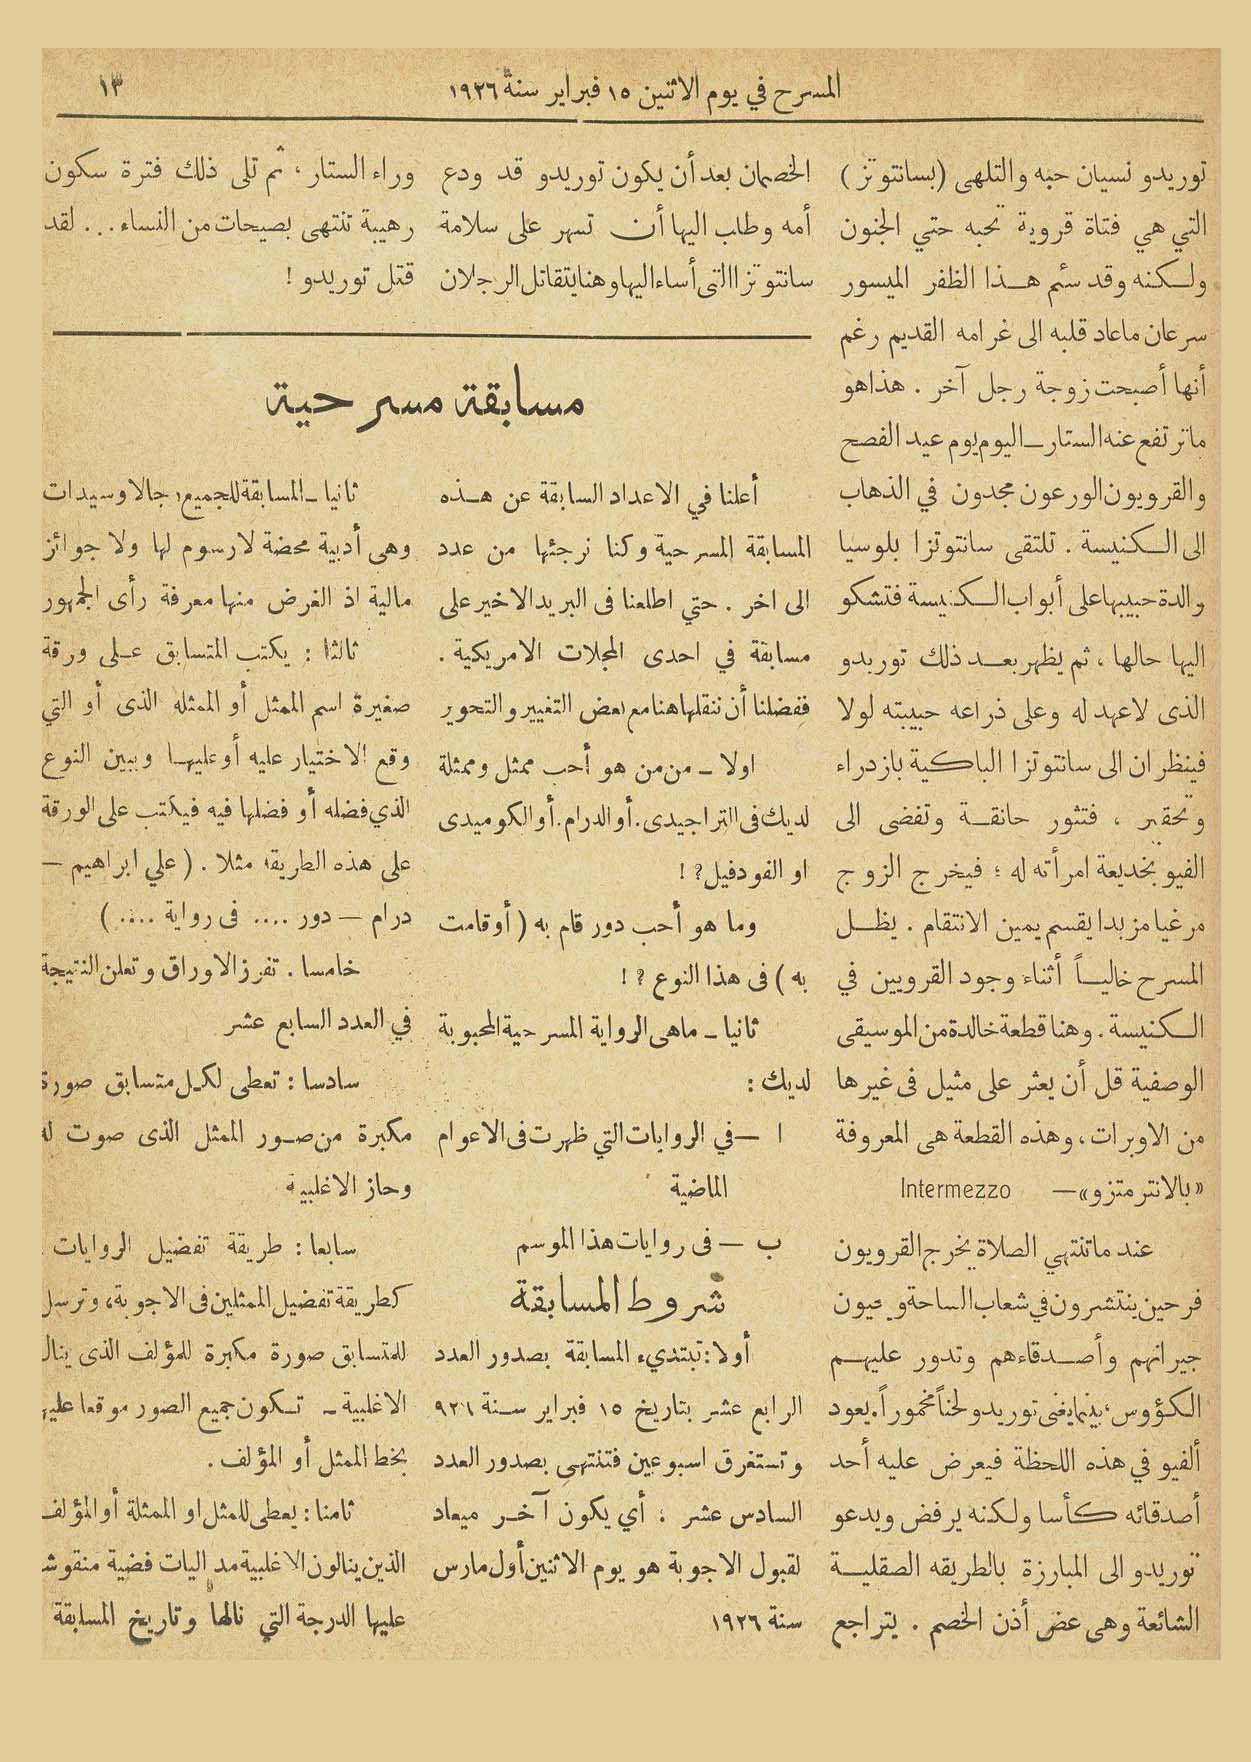 المسرح في يوم الاثنين ١٥ فبراير سنة ١٩٢٦
١٣
توريدو نسيان حبه والتلهى (بسانتوتز)
التي هي فتاة قروية تحبه حتي الجنون
ولكنه وقد سئم هذا الظفر الميسور
سرعان ماعاد قلبه الى غرامه القديم رغم
أنها أصبحت زوجة رجل آخر . هذا هو
ماترتفع عنه الستار ــ اليوم يوم عيد الفصح
والقرويون الورعون مجدون في الذهاب
الى الكنيسة . تلتقى سانتوتزا بلوسيا
والدة حبيبها على أبواب الكنيسة فتشكو
اليها حالها ، ثم يظهر بعد ذلك توريدو
الذى لاعهد له وعلى ذراعه حبيبته لولا
فينظران الى سانتوتزا الباكية بازدراء
وتحقير ، فتثور حانقة وتفضى الى
الفيو بخديعة امرأته له ؛ فيخرج الزوج
مرغيا مزبدا يقسم يمين الانتقام . يظل
المسرح خالياً أثناء وجود القرويين في
الكنيسة . وهنا قطعة خالدة من الموسيقى
الوصفية قل أن يعثر على مثيل فى غيرها
من الاوبرات ، وهذه القطعة هى المعروفة
«بالانترمتزو» — Intermezzo
عند ماتنتهي الصلاة يخرج القرويون
فرحين ينتشرون في شعاب الساحة ويحيون
جيرانهم وأصدقاءهم وتدور عليهم
الكؤوس ، بينما يغنى توريدو لحناً مخموراً . يعود
ألفيو في هذه اللحظة فيعرض عليه أحد
أصدقائه كأسا ولكنه يرفض ويدعو
توريدو الى المبارزة بالطريقه الصقلية
الشائعة وهى عض أذن الخصم . يتراجع
الخصمان بعد أن يكون توريدو قد ودع
أمه وطلب اليها أن تسهر على سلامة
سانتوتزا التى أساء اليها وهنا يتقاتل الرجلان
وراء الستار ، ثم تلى ذلك فترة سكون
رهيبة تنتهى بصيحات من النساء ... لقد
قتل توريدو !
مسابقة مسرحية
أعلنا في الاعداد السابقة عن هذه
المسابقة المسرحية وكنا نرجئها من عدد
الى اخر . حتي اطلعنا فى البريد الاخير على
مسابقة في احدى المجلات الامريكية .
ففضلنا أن ننقلها هنا مع بعض التغيير والتحوير
اولا ــ من من هو أحب ممثل وممثلة
لديك فى التراجيدى . أو الدرام . أو الكوميدى
او الفودفيل ؟ !
وما هو أحب دور قام به ( أو قامت
به ) فى هذا النوع ؟ !
ثانيا ــ ماهى الرواية المسرحية المحبوبة
لديك :
ا — في الروايات التي ظهرت فى الاعوام
الماضية
ب — فى روايات هذا الموسم
شروط المسابقة
أولا : تبتديء المسابقة بصدور العدد
الرابع عشر بتاريخ ١٥ فبراير سنة ٩٢٦
وتستغرق اسبوعين فتنتهى بصدور العدد
السادس عشر ، أي يكون آخر ميعاد
لقبول الاجوبة هو يوم الاثنين أول مارس
سنة ١٩٢٦
ثانيا ــ المسابقة للجميع رجالا وسيدات
وهى أدبية محضة لارسوم لها ولا جوائز
مالية اذ الغرض منها معرفة رأى الجمهور
ثالثا : يكتب المتسابق على ورقة
صغيرة اسم الممثل أو الممثله الذى أو التي
وقع الاختيار عليه أو عليها ويبين النوع
الذي فضله أو فضلها فيه فيكتب على الورقة
على هذه الطريقة مثلا . ( علي ابراهيم —
درام — دور .... فى رواية .... )
خامسا . تفرز الاوراق وتعلن النتيجة
في العدد السابع عشر
سادسا : تعطى لكل متسابق صورة
مكبرة من صور الممثل الذى صوت له
وحاز الاغلبية
سابعا : طريقة تفضيل الروايات
كطريقة تفضيل الممثلين فى الاجوبة ، وترسل
للمتسابق صورة مكبرة للمؤلف الذى ينال
الاغلبية ــ تكون جميع الصور موقعا عليها
بخط الممثل أو المؤلف .
ثامنا : يعطى للمثل او الممثلة أو المؤلف
الذين ينالون الاغلبية مداليات فضية منقوش
عليها الدرجة التي نالها وتاريخ المسابقة